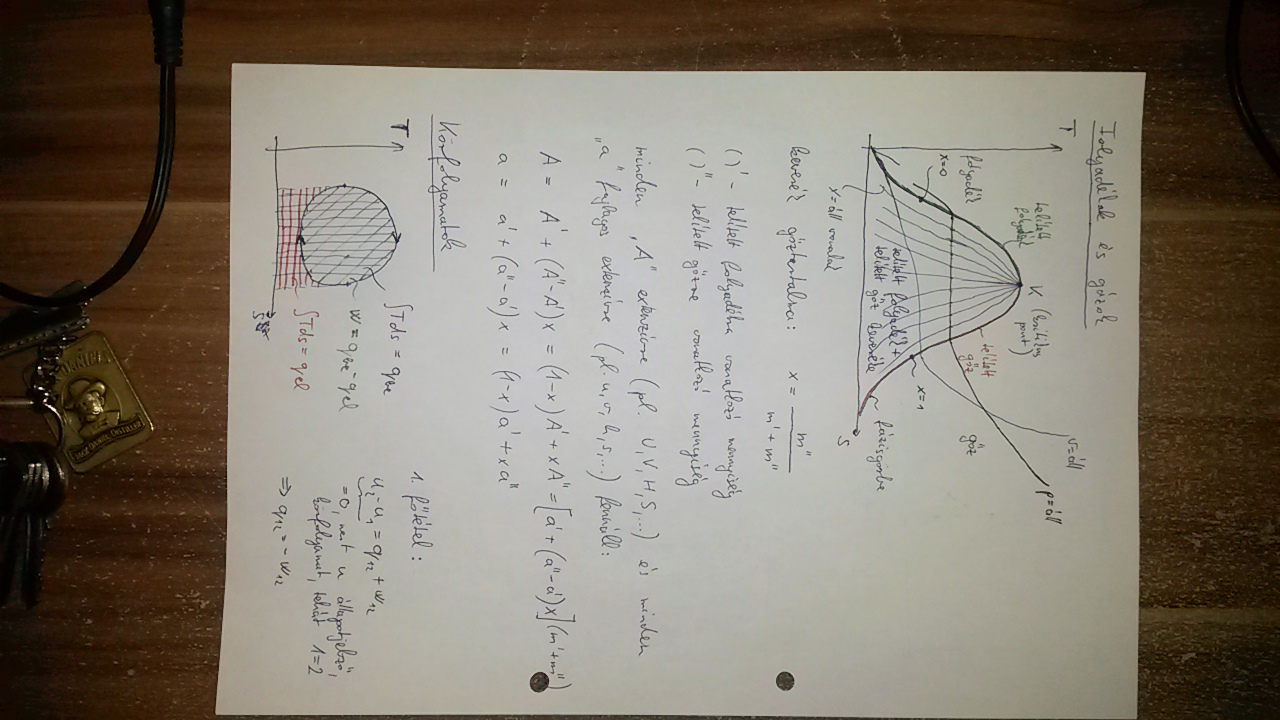 Folyadékok és gőzök
T
K (kritikus
pont)
telített
folyadék
telített
gőz
folyadék
x=0
gőz
v=áll
p=áll
telített folyadék +
telített gőz keverék
x=1
fázisgörbe
x=áll vonalak
S
keverék gőztartalma: x = m" / m'+m"
()' - telített folyadékra vonatkozó mennyiség
()" - telített gőzre vonatkozó mennyiség
minden „A" extenzívre (pl. U,V,H,S,...) és minden
„a" fajlagos extenzívre (pl. u,v,h,s,...) fennáll:
A = A' + (A"-A')x = (1-x)A' + xA" = [a' + (a"-a')x](m'+m")
a = a' + (a"-a')x = (1-x)a' + xa"
Körfolyamatok
T
∫Tds = qbe
w = qbe - qel
∫Tds = qel
s
1. főtétel:
u2-u1 = q12 + w12
=0, mert u állapotjelző,
körfolyamat, tehát 1=2
⇒ q12 = -w12
JACK DANIEL DISTILLERY